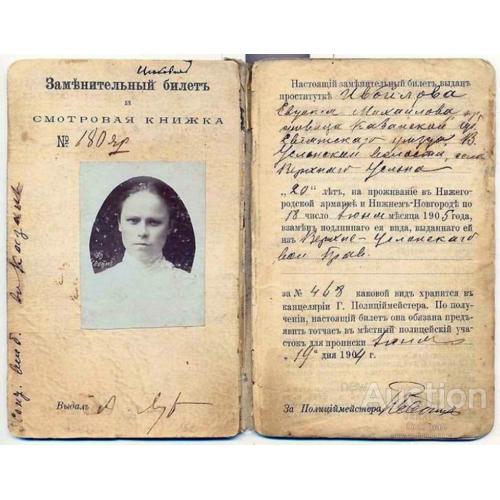 Замѣнительный билетъ
и
СМОТРОВАЯ КНИЖКА
№ 180 яр
Выдалъ
Настоящій замѣнительный билетъ выданъ
проституткѣ Ивойлова
Евдокія Михайлова кр.
Казанской губ.
уѣзда, В.
Услонской волости, села
Верхняго Услона
„20“ лѣтъ, на проживаніе въ Нижего-
родской армаркѣ и Нижнемъ-Новгородѣ по
18 число іюня мѣсяца 1905 года,
взамѣнъ подлиннаго ея вида, выданнаго ей
изъ Верхне-Услонскаго
вол. Прав.
за № 468 каковой видъ хранится въ
канцеляріи Г. Полиціймейстера. По полу-
ченіи, настоящій билетъ она обязана предъ-
явить тотчасъ въ мѣстный полицейскій уча-
стокъ для прописки іюня
„19“ дня 1904 г.
За Полиціймейстера
Auction